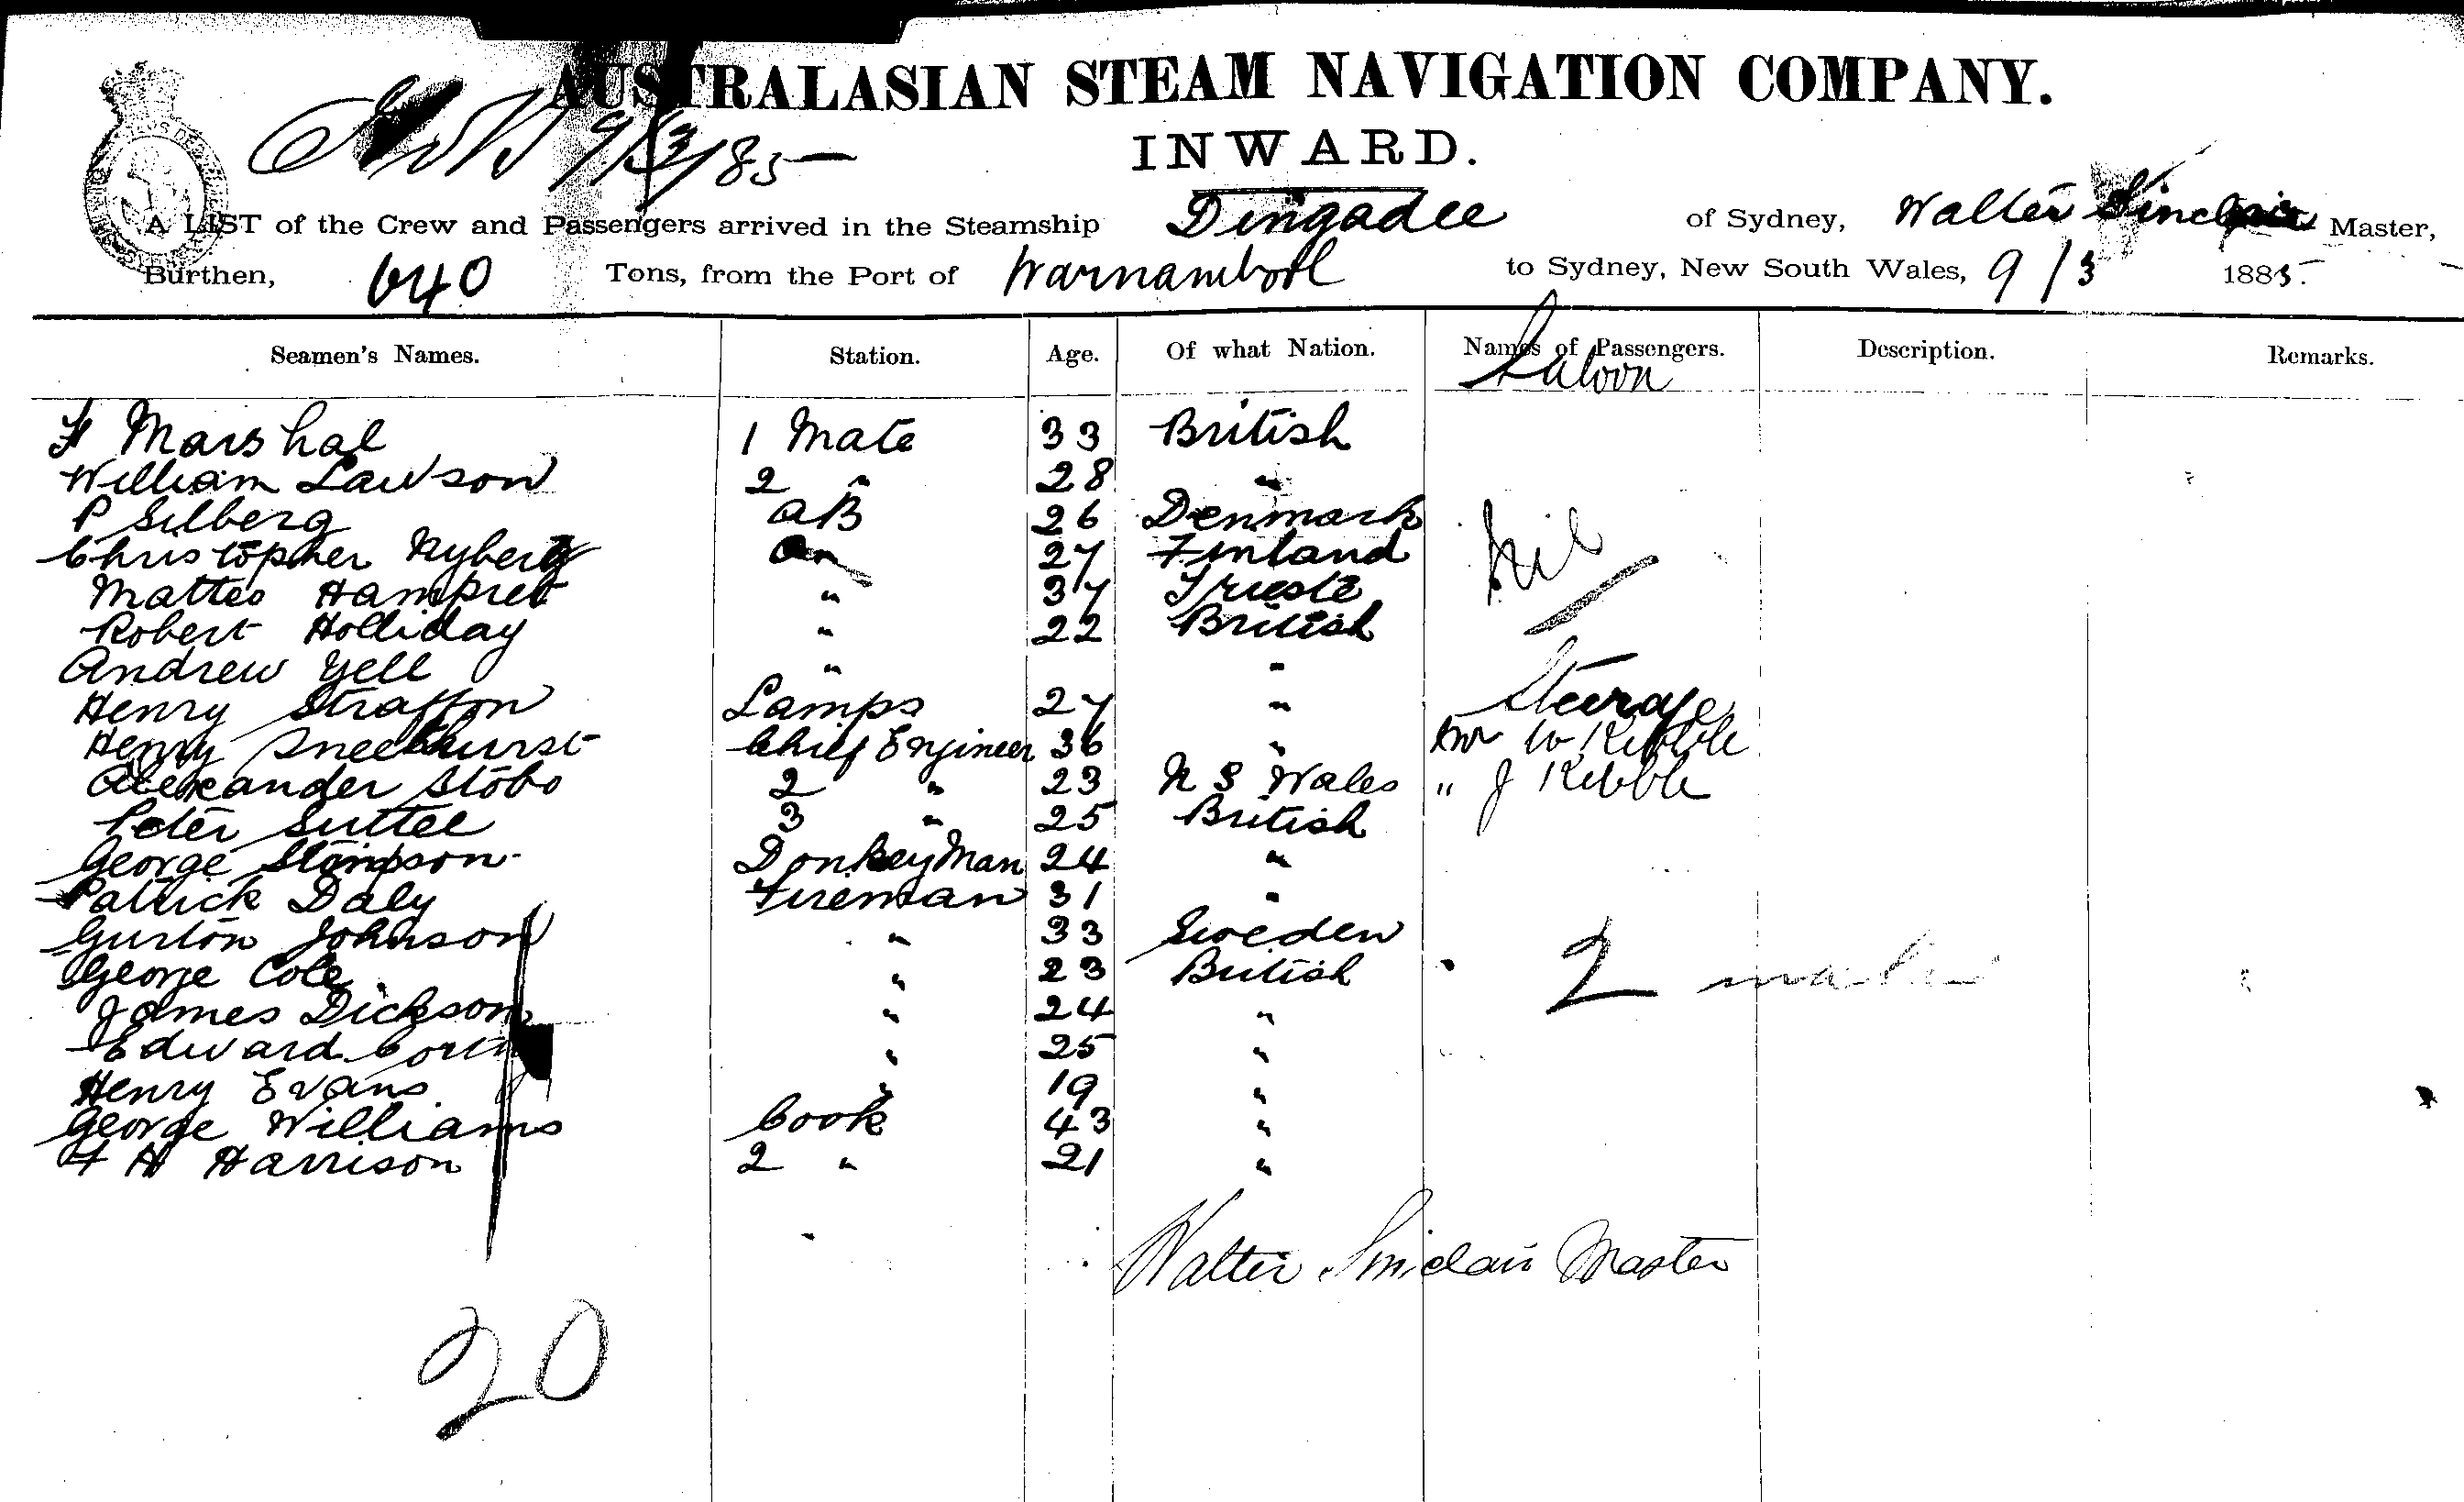 AUSTRALASIAN STEAM NAVIGATION COMPANY.
9/3/85
INWARD.
A LIST of the Crew and Passengers arrived in the Steamship Dingadee of Sydney, Walter Sinclair Master,
Burthen, 640 Tons, from the Port of Warnambool to Sydney, New South Wales, 9/3 1885.
Seamen's Names. Station. Age. Of what Nation. Names of Passengers. Description. Remarks.
Saloon
F Marshal 1 Mate 33 British
William Lawson 2 " 28 "
P Silberg AB 26 Denmark Nil
Christopher Nyberg 27 Finland
Matteo 37 Trieste
Robert Holliday " 22 British
Andrew Yell " "
Henry Straffon Lamps 27 " Steerage
Henry Sneekhurst Chief Engineer 36 " Mr W Kibble
Alexander Stobo 2 " 23 N S Wales " J Kibble
Peter Suttee 3 " 25 British
George Stimpson Donkey Man 24 "
Patrick Daly Fireman 31 "
Gurton Johnson " 33 Sweden
George Cole " 23 British 2 males
James Dickson " 24 "
Edward " 25 "
Henry Evans " 19 "
George Williams Cook 43 "
F H Harrison 2 " 21 "
Walter Sinclair Master
20